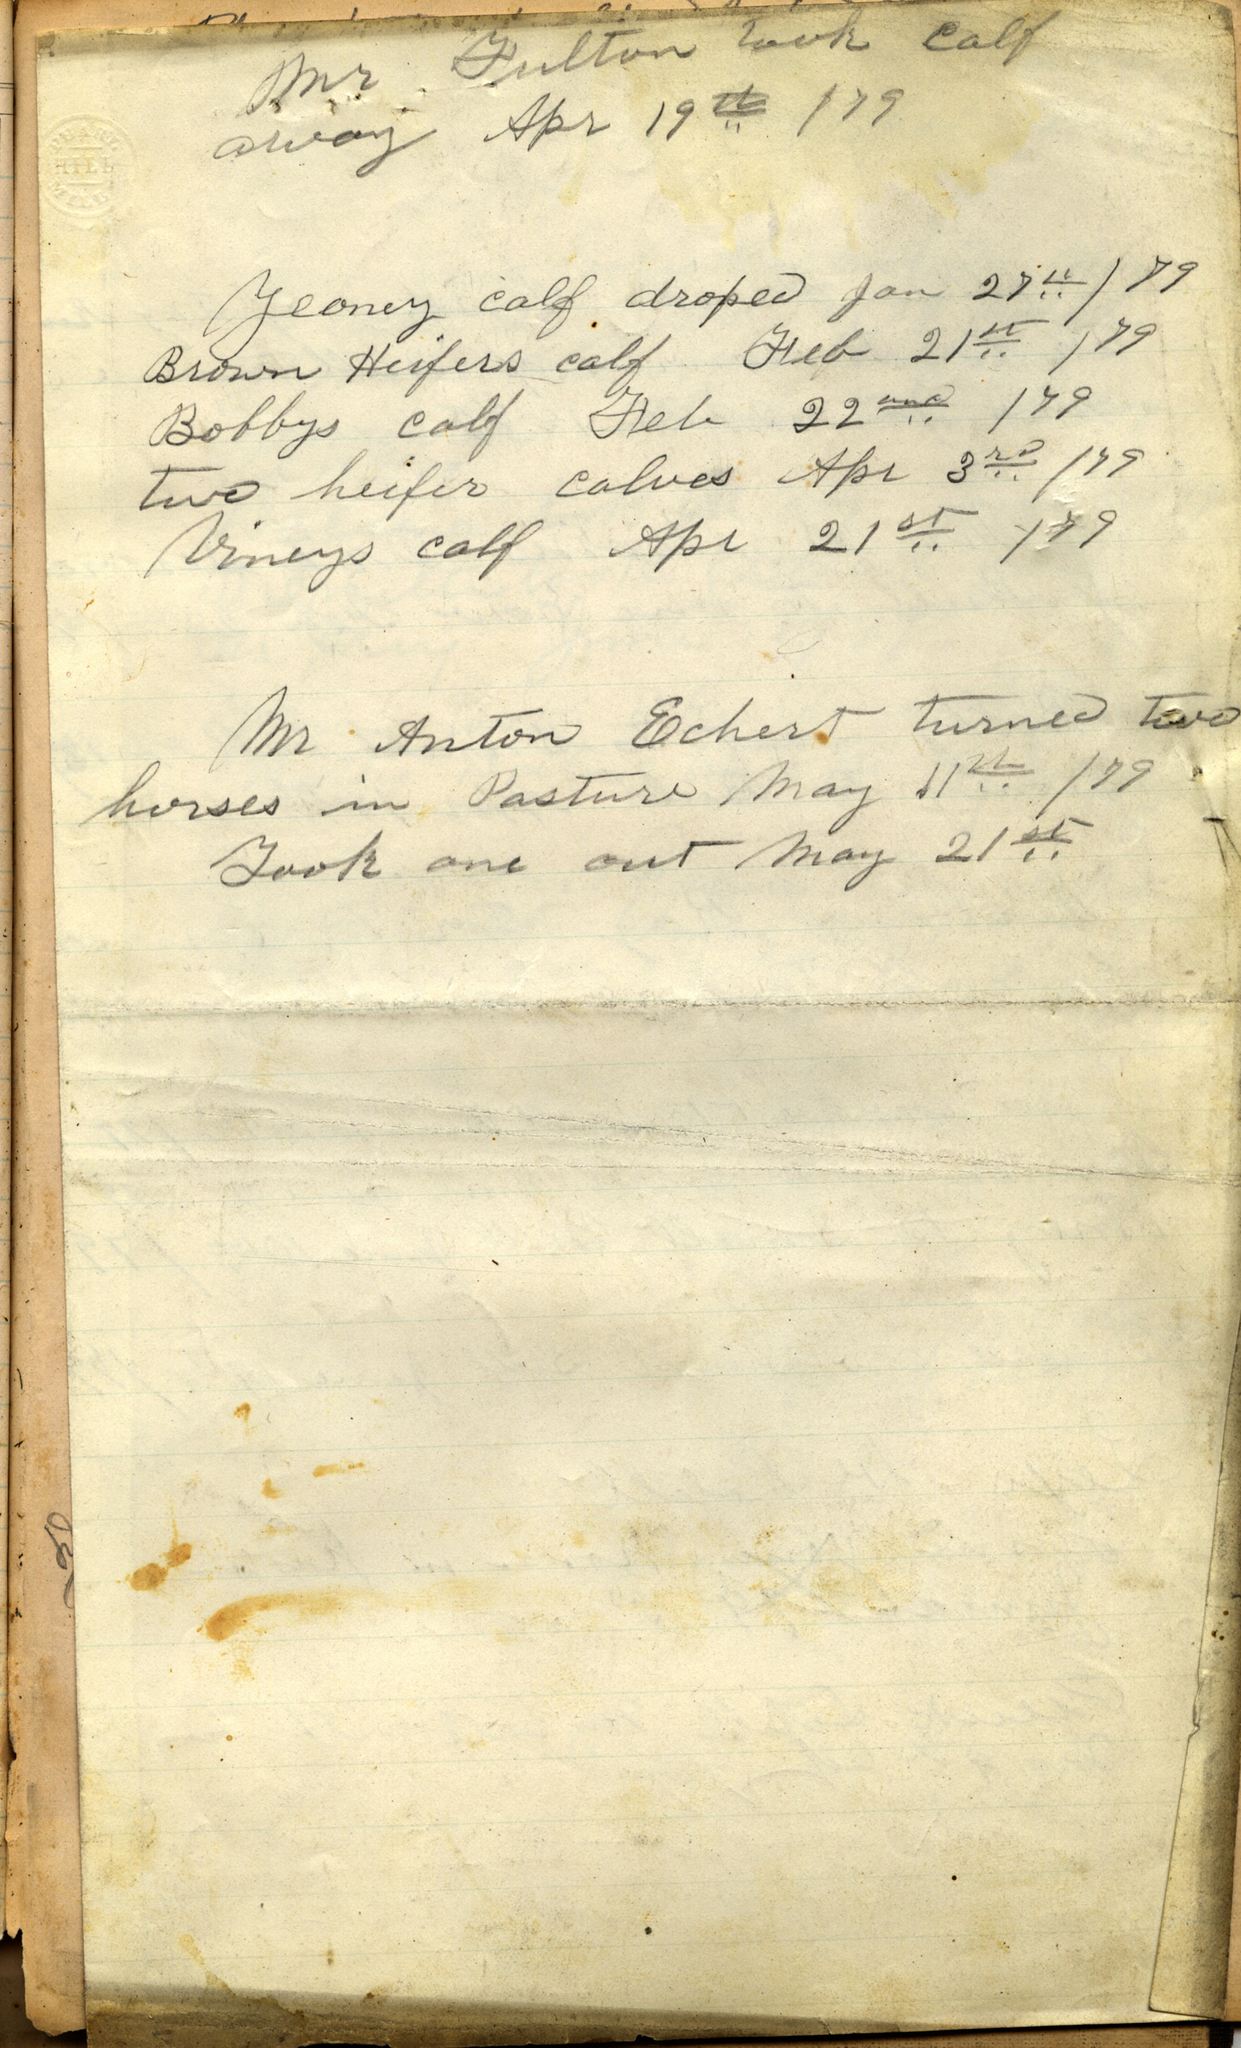 Mr Fulton took calf
away Apr 19th /79
Yeoney calf droped Jan 27th /79
Brown Heifers calf Feb 21st /79
Bobbys calf Feb 22nd /79
two heifer calves Apr 3rd /79
Vineys calf Apr 21st /79
Mr Anton Echert turned two
horses in Pasture May 11th /79
Took one out May 21st